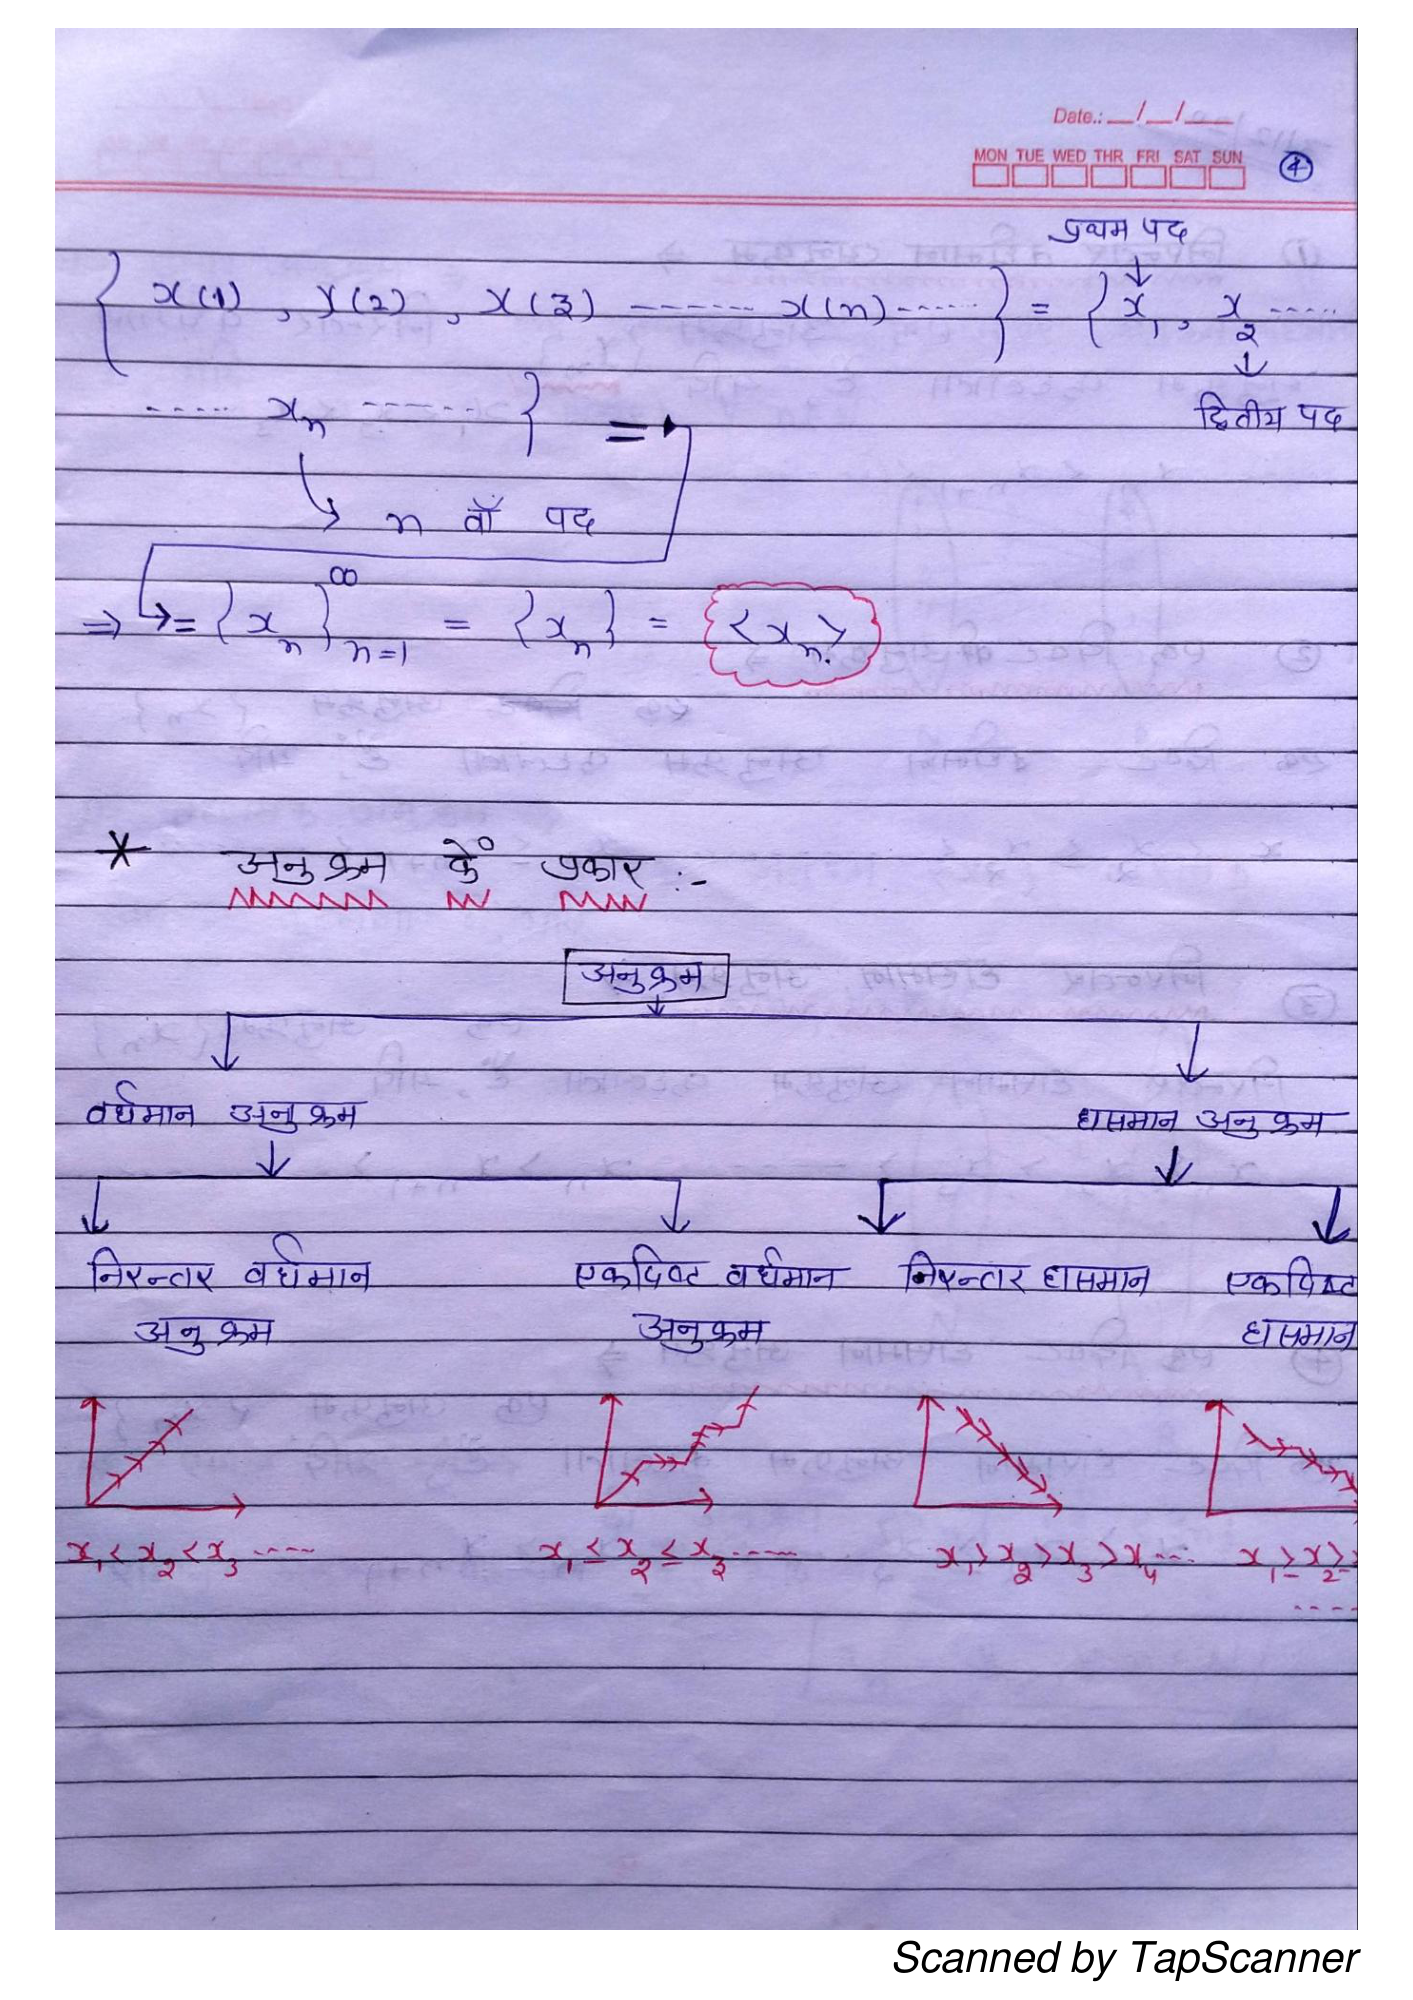 Date.: __/__/___
MON TUE WED THR FRI SAT SUN
4
प्रथम पद
{ x(1) , x(2) , x(3) ------- x(n)------ } = { x₁, x₂ -----
द्वितीय पद
----- xₙ ------- } =
n वाँ पद
⇒ = {xₙ}^∞ₙ₌₁ = {xₙ} = <xₙ>
* अनुक्रम के प्रकार :-
अनुक्रम
वर्धमान अनुक्रम ह्रासमान अनुक्रम
निरन्तर वर्धमान एकदिष्ट वर्धमान निरन्तर ह्रासमान एकदिष्ट
अनुक्रम अनुक्रम ह्रासमान
x₁ < x₂ < x₃ ----- x₁ ≤ x₂ ≤ x₃ ------ x₁ > x₂ > x₃ > x₄ --- x₁ ≥ x₂ ≥
----
Scanned by TapScanner